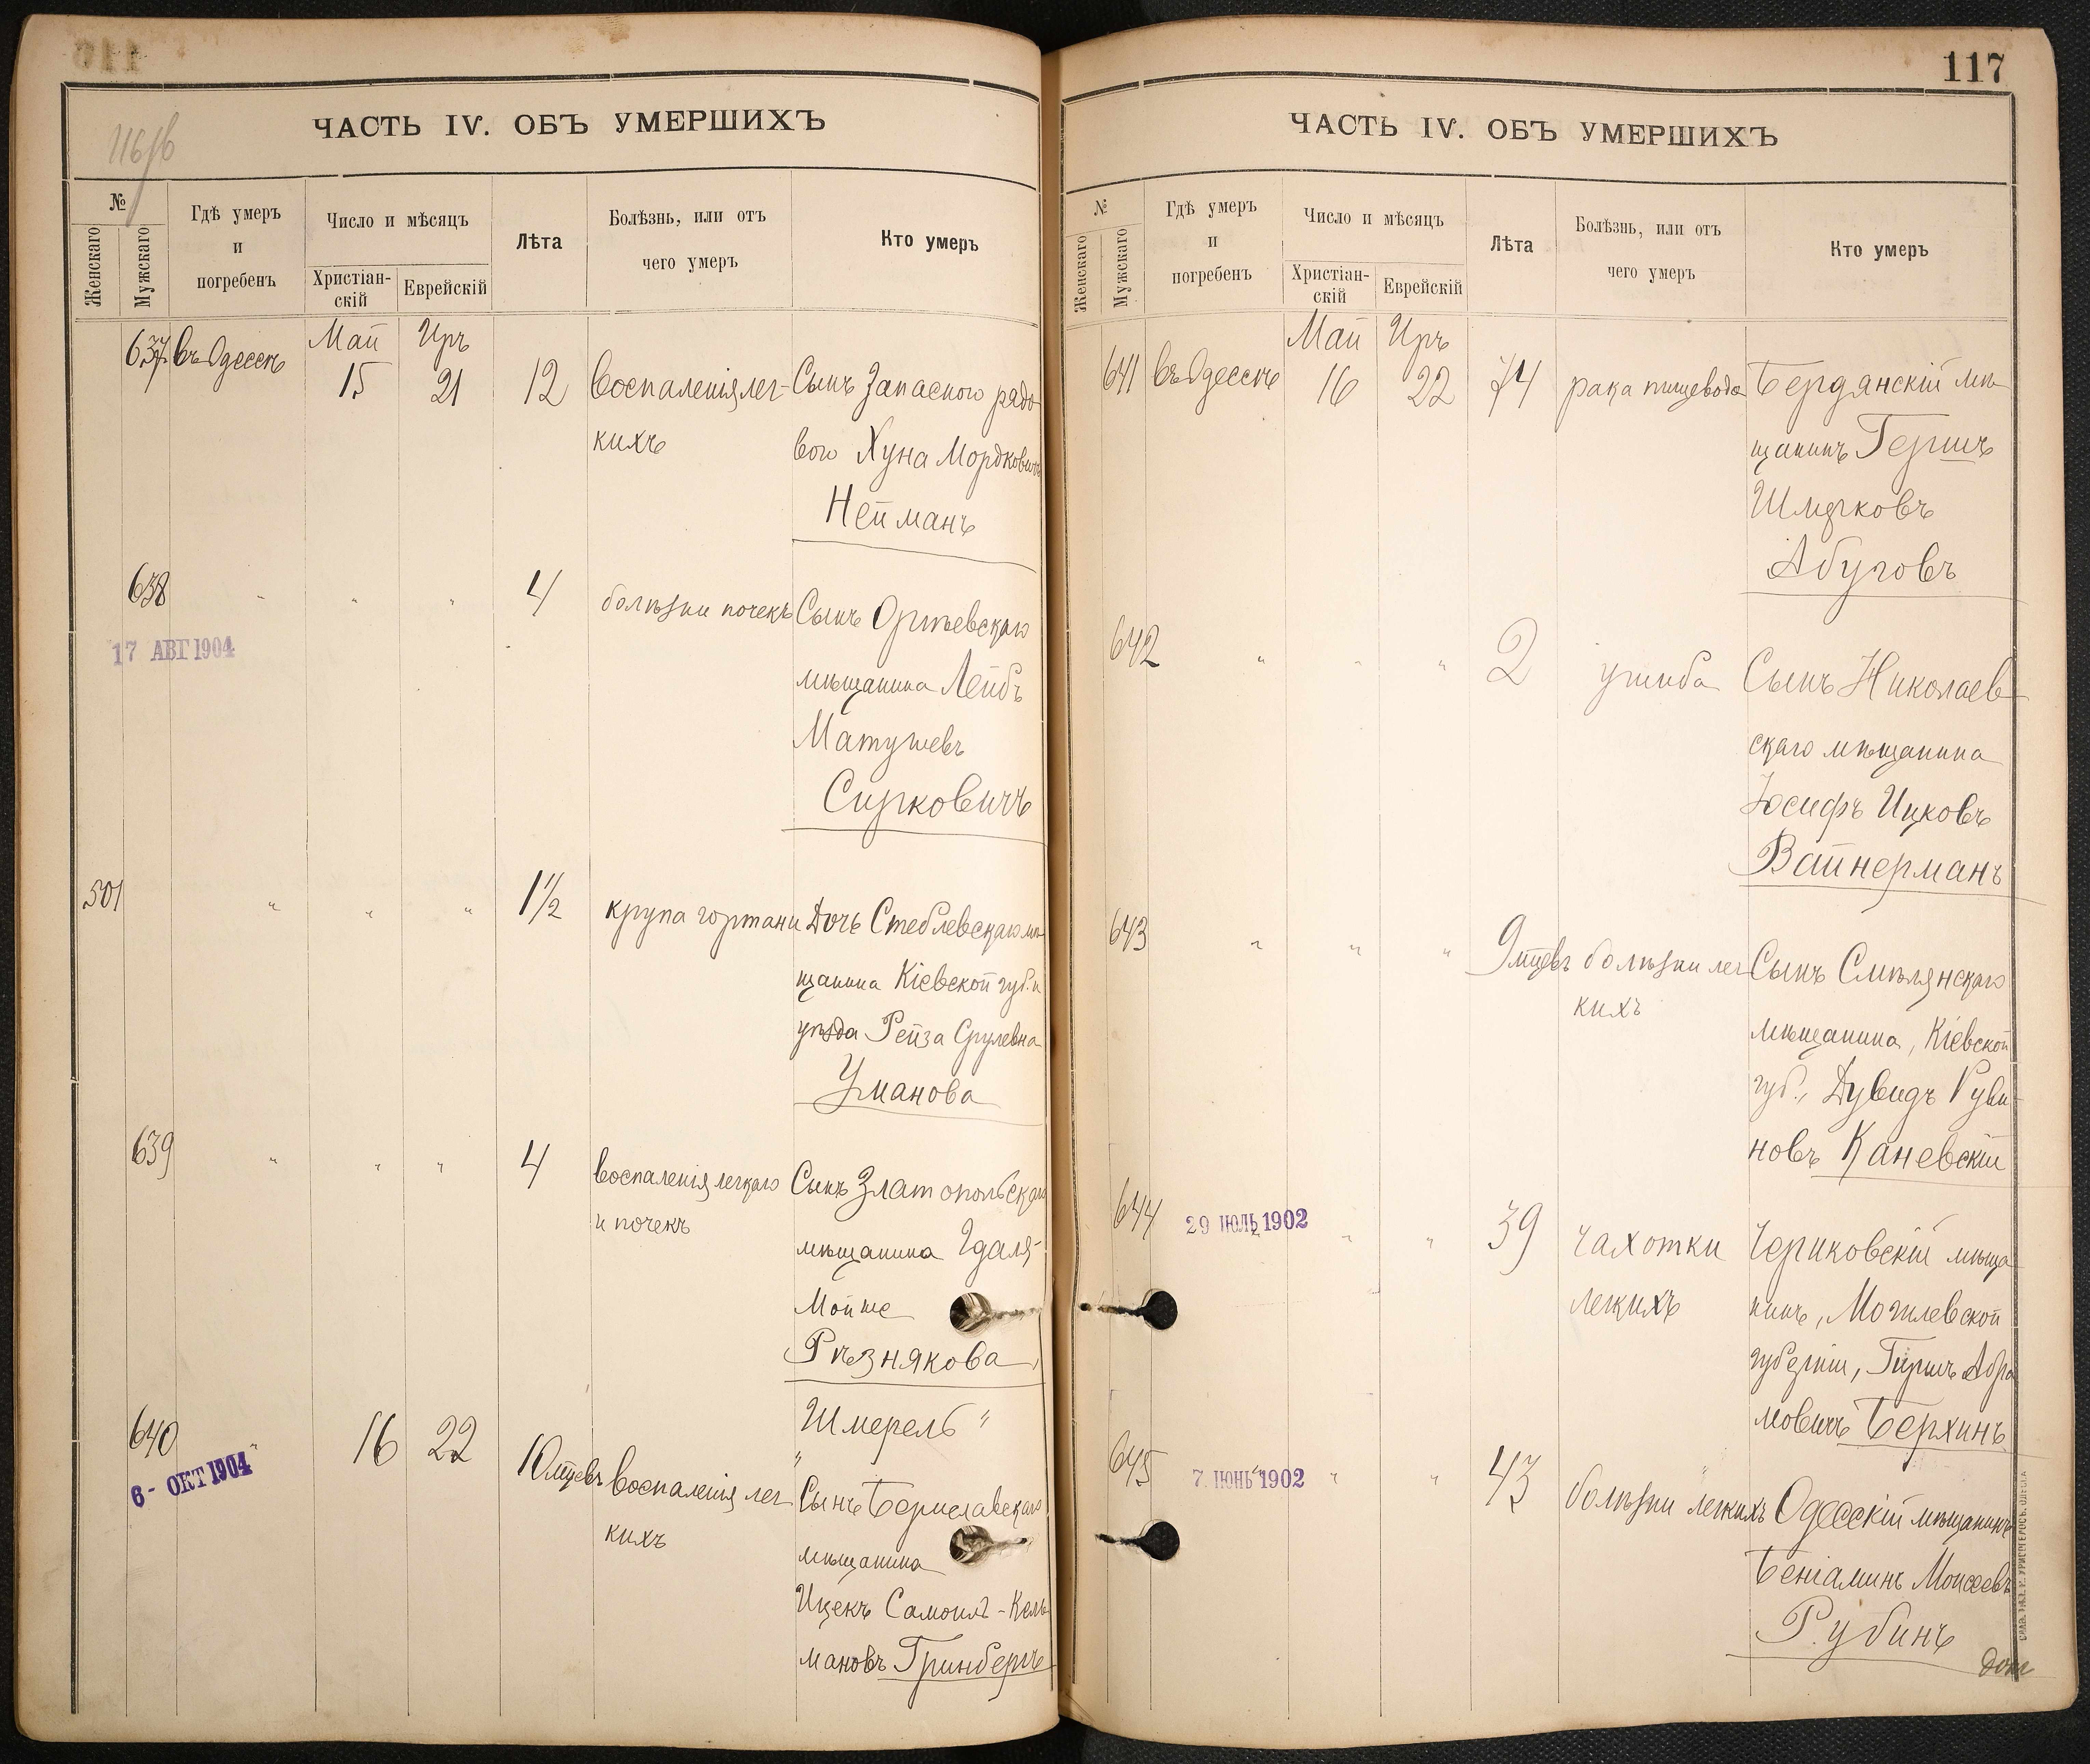 116/б
ЧАСТЬ IV. ОБЪ УМЕРШИХЪ
№
Женскаго
Мужскаго
Гдѣ умеръ
и
погребенъ
Число и мѣсяцъ
Христіан-
скій
Еврейскій
Лѣта
Болѣзнь, или отъ
чего умеръ
Кто умеръ
637 въ Одессѣ Май 15 Иръ 21 12 воспаленія лег- Сынъ Запаснаго рядо
кихъ вого Хуна Мордковичъ
Нейманъ
638 " " " 4 болѣзни почекъ Сынъ Оргѣевскаго
17 АВГ 1904
мѣщанина Лейбъ
Матушевъ
Сирковичъ
501 " " " 1 1/2 крупа гортани Дочь Стеблевскаго мѣ
щанина Кіевской губ. и
уѣзда Рейза Срулевна
Уманова
639 " " " 4 воспаленія легкаго Сынъ Златопольскаго
и почекъ мѣщанина Гдаля-
Мойше
Рѣзнякова,
Шмерель "
640 " 16 22 10 мцевъ воспаленія лег Сынъ Бериславскаго
6- ОКТ 1904
кихъ мѣщанина
Ицекъ Самоилъ-Кель
мановъ Гринбергъ
117
ЧАСТЬ IV. ОБЪ УМЕРШИХЪ
№
Женскаго
Мужскаго
Гдѣ умеръ
и
погребенъ
Число и мѣсяцъ
Христіан-
скій
Еврейскій
Лѣта
Болѣзнь, или отъ
чего умеръ
Кто умеръ
641 въ Одессѣ Май 16 Иръ 22 74 рака пищевода Бердянскій мѣ
щанинъ Гершъ
Шмерковъ
Абуговъ
642 " " " 2 ушиба Сынъ Николаев
скаго мѣщанина
Іосифъ Ицковъ
Вайнерманъ
643 " " " 9 мцевъ болѣзни лег Сынъ Смѣлянскаго
кихъ мѣщанина, Кіевской
губ., Дувидъ Руви-
новъ Каневскій
644 29 ІЮЛЬ 1902 " " 39 чахотки Чериковскій мѣща
легкихъ нинъ, Могилевской
губерніи, Гиршъ Абра
мовичъ Берхинъ
645 7. ІЮНЬ 1902 " " 43 болѣзни легкихъ Одесскій мѣщанинъ
Беніаминъ Моисеевъ
Рубинъ